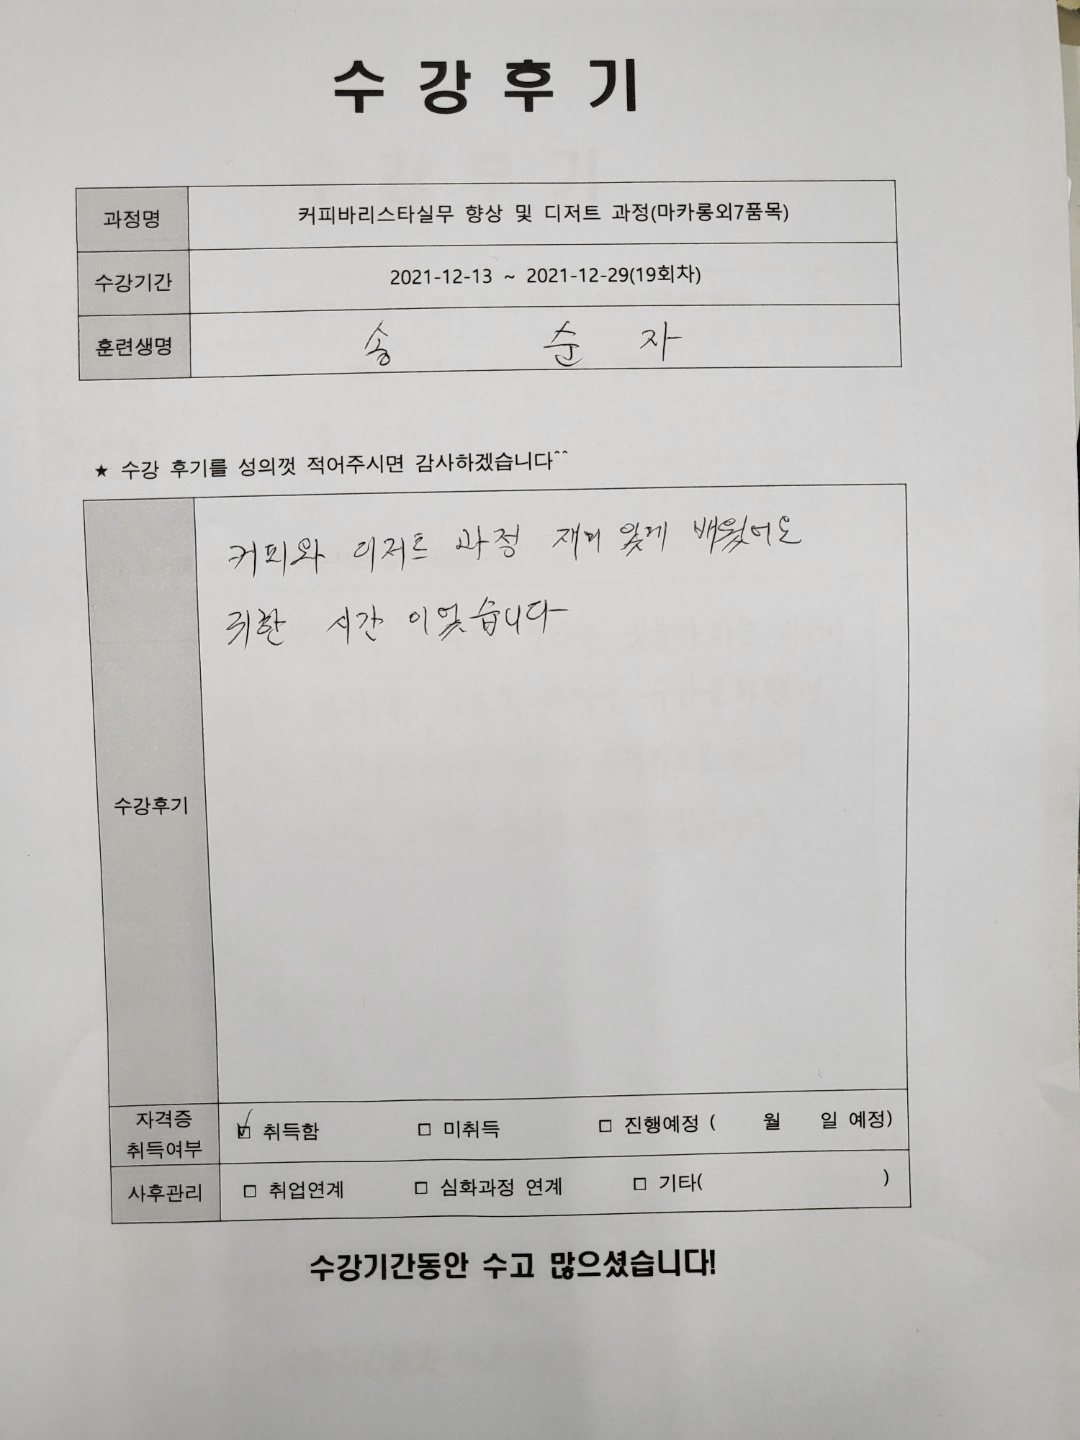 수 강 후 기
과정명 커피바리스타실무 향상 및 디저트 과정(마카롱외7품목)
수강기간 2021-12-13 ~ 2021-12-29(19회차)
훈련생명 송 순 자
★ 수강 후기를 성의껏 적어주시면 감사하겠습니다^^
커피와 디저트 과정 재미 있게 배웠어요
귀한 시간 이었습니다
수강후기
자격증 취득여부 ☑ 취득함 □ 미취득 □ 진행예정 ( 월 일 예정)
사후관리 □ 취업연계 □ 심화과정 연계 □ 기타( )
수강기간동안 수고 많으셨습니다!